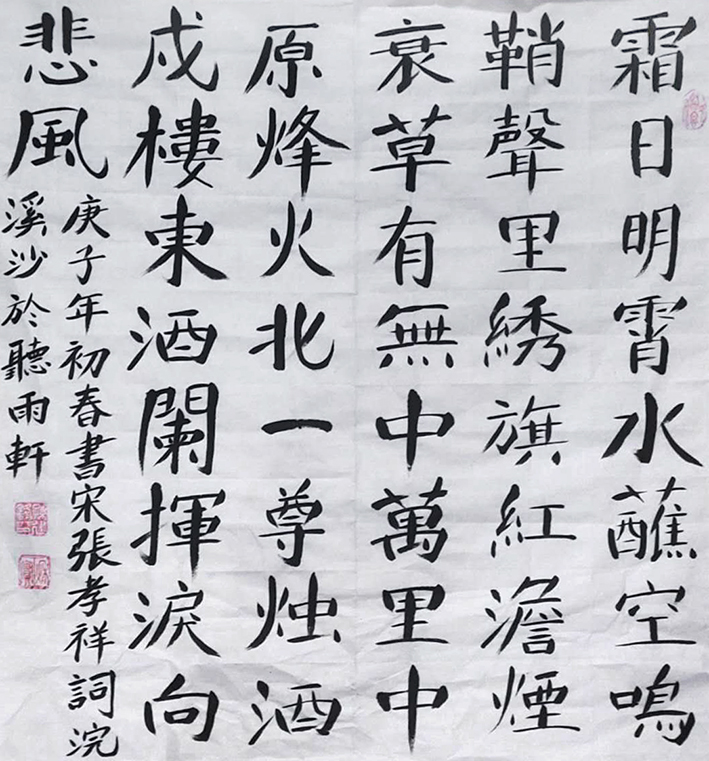 霜日明霄水蘸空鳴
鞘聲里綉旗紅澹煙
衰草有無中萬里中
原烽火北一尊烛酒
戍樓東酒闌揮淚向
悲風
庚子年初春書宋張孝祥詞浣
溪沙於聽雨軒